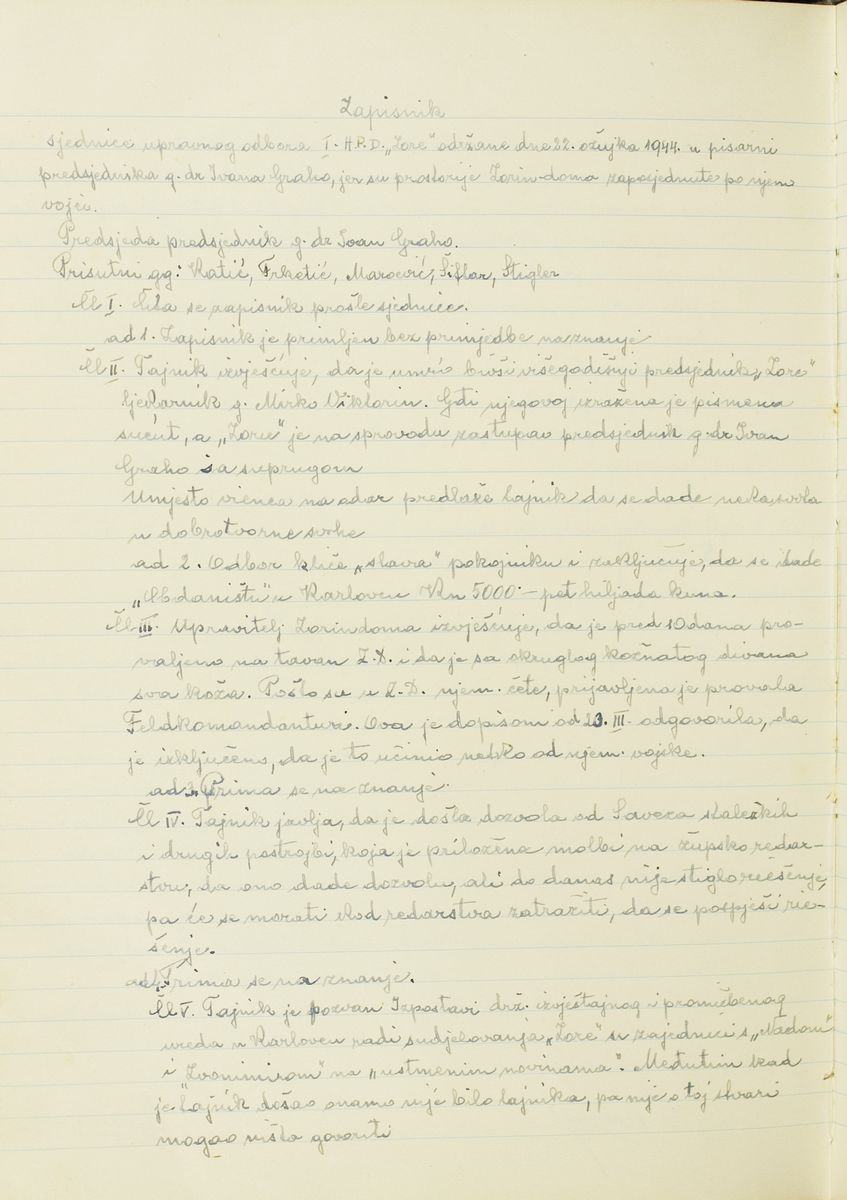 Zapisnik
sjednice upravnog odbora I. H.P.D. „Zore" održane dne 22. ožujka 1944. u pisarni
predsjednika g. dr Ivana Graho, jer su prostorije Zorin-doma zaposjednute po njem
vojci.
Predsjeda predsjednik g. dr Ivan Graho.
Prisutni gg: Katić, Trketić, Maroević, Šiflar, Stigler
Čl I. Čita se zapisnik prošle sjednice.
ad 1. Zapisnik je primljen bez primjedbe na znanje
Čl II. Tajnik izvješćuje, da je umro bivši višegodišnji predsjednik „Zore"
ljekarnik g. Mirko Viktorin. Gđi njegovoj izražena je pismena
sućut, a „Zoru" je na sprovodu zastupao predsjednik g. dr Ivan
Graho sa suprugom
Umjesto vienca na odar predlaže tajnik da se dade neka svota
u dobrotvorne svrhe
ad 2. Odbor kliče „slava" pokojniku i zaključuje, da se dade
„Obdaništu" u Karlovcu Kn 5000.- pet hiljada kuna.
Čl III. Upravitelj Zorindoma izvješćuje, da je pred 10 dana pro-
valjeno na tavan Z.D. i da je sa okruglog kožnatog divana
sva koža. Pošto su u Z.D. njem. čete, prijavljena je provala
Feldkomandanturi. Ova je dopisom od 23. III. odgovorila, da
je izključeno, da je to učinio netko od njem. vojske.
ad 3. Prima se na znanje.
Čl IV. Tajnik javlja, da je došla dozvola od Saveza staležkih
i drugih postrojbi, koja je priložena molbi na župsko redar-
stvu, da ono dade dozvolu, ali do danas nije stiglo rješenje,
pa će se morati kod redarstva zatražiti, da se pospješi rie-
šenje.
ad 4. Prima se na znanje.
Čl V. Tajnik je pozvan Izpostavi drž. izvještajnog i promičbenog
ureda u Karlovcu radi sudjelovanja „Zore" u zajednici s „Nadom"
i „Zvonimirom" na „ustmenim novinama". Međutim kad
je tajnik došao onamo nije bilo tajnika, pa nije o toj stvari
mogao ništa govoriti